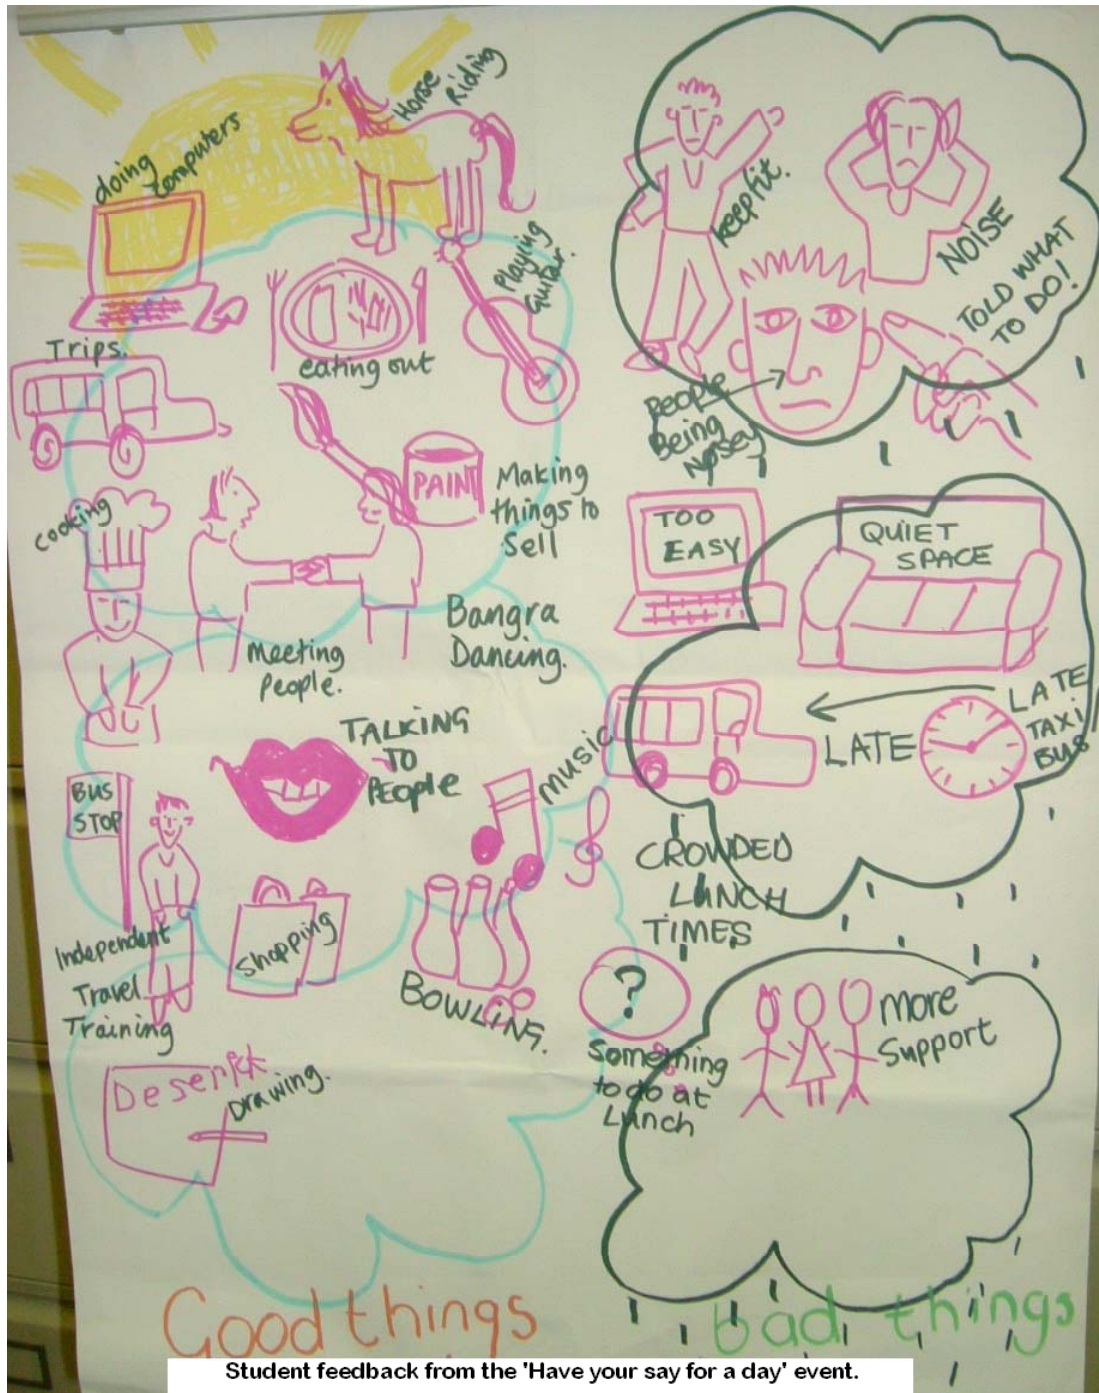 Horse
Riding
doing
computers
Playing
Guitar.
eating out
Trips.
PAINT
Making
things to
Sell
cooking
Meeting
People.
Bangra
Dancing.
TALKING
TO
PEOPLE
music
BUS
STOP
Independent
Travel
Training
Shopping
BOWLING.
Deserick
Drawing.
Good things
keep fit.
NOISE
TOLD WHAT
TO DO!
People
Being
Nosey
TOO
EASY
QUIET
SPACE
LATE
LATE
TAXI
BUS
CROWDED
LUNCH
TIMES
?
Something
to do at
Lunch
More
Support
bad things
Student feedback from the 'Have your say for a day' event.